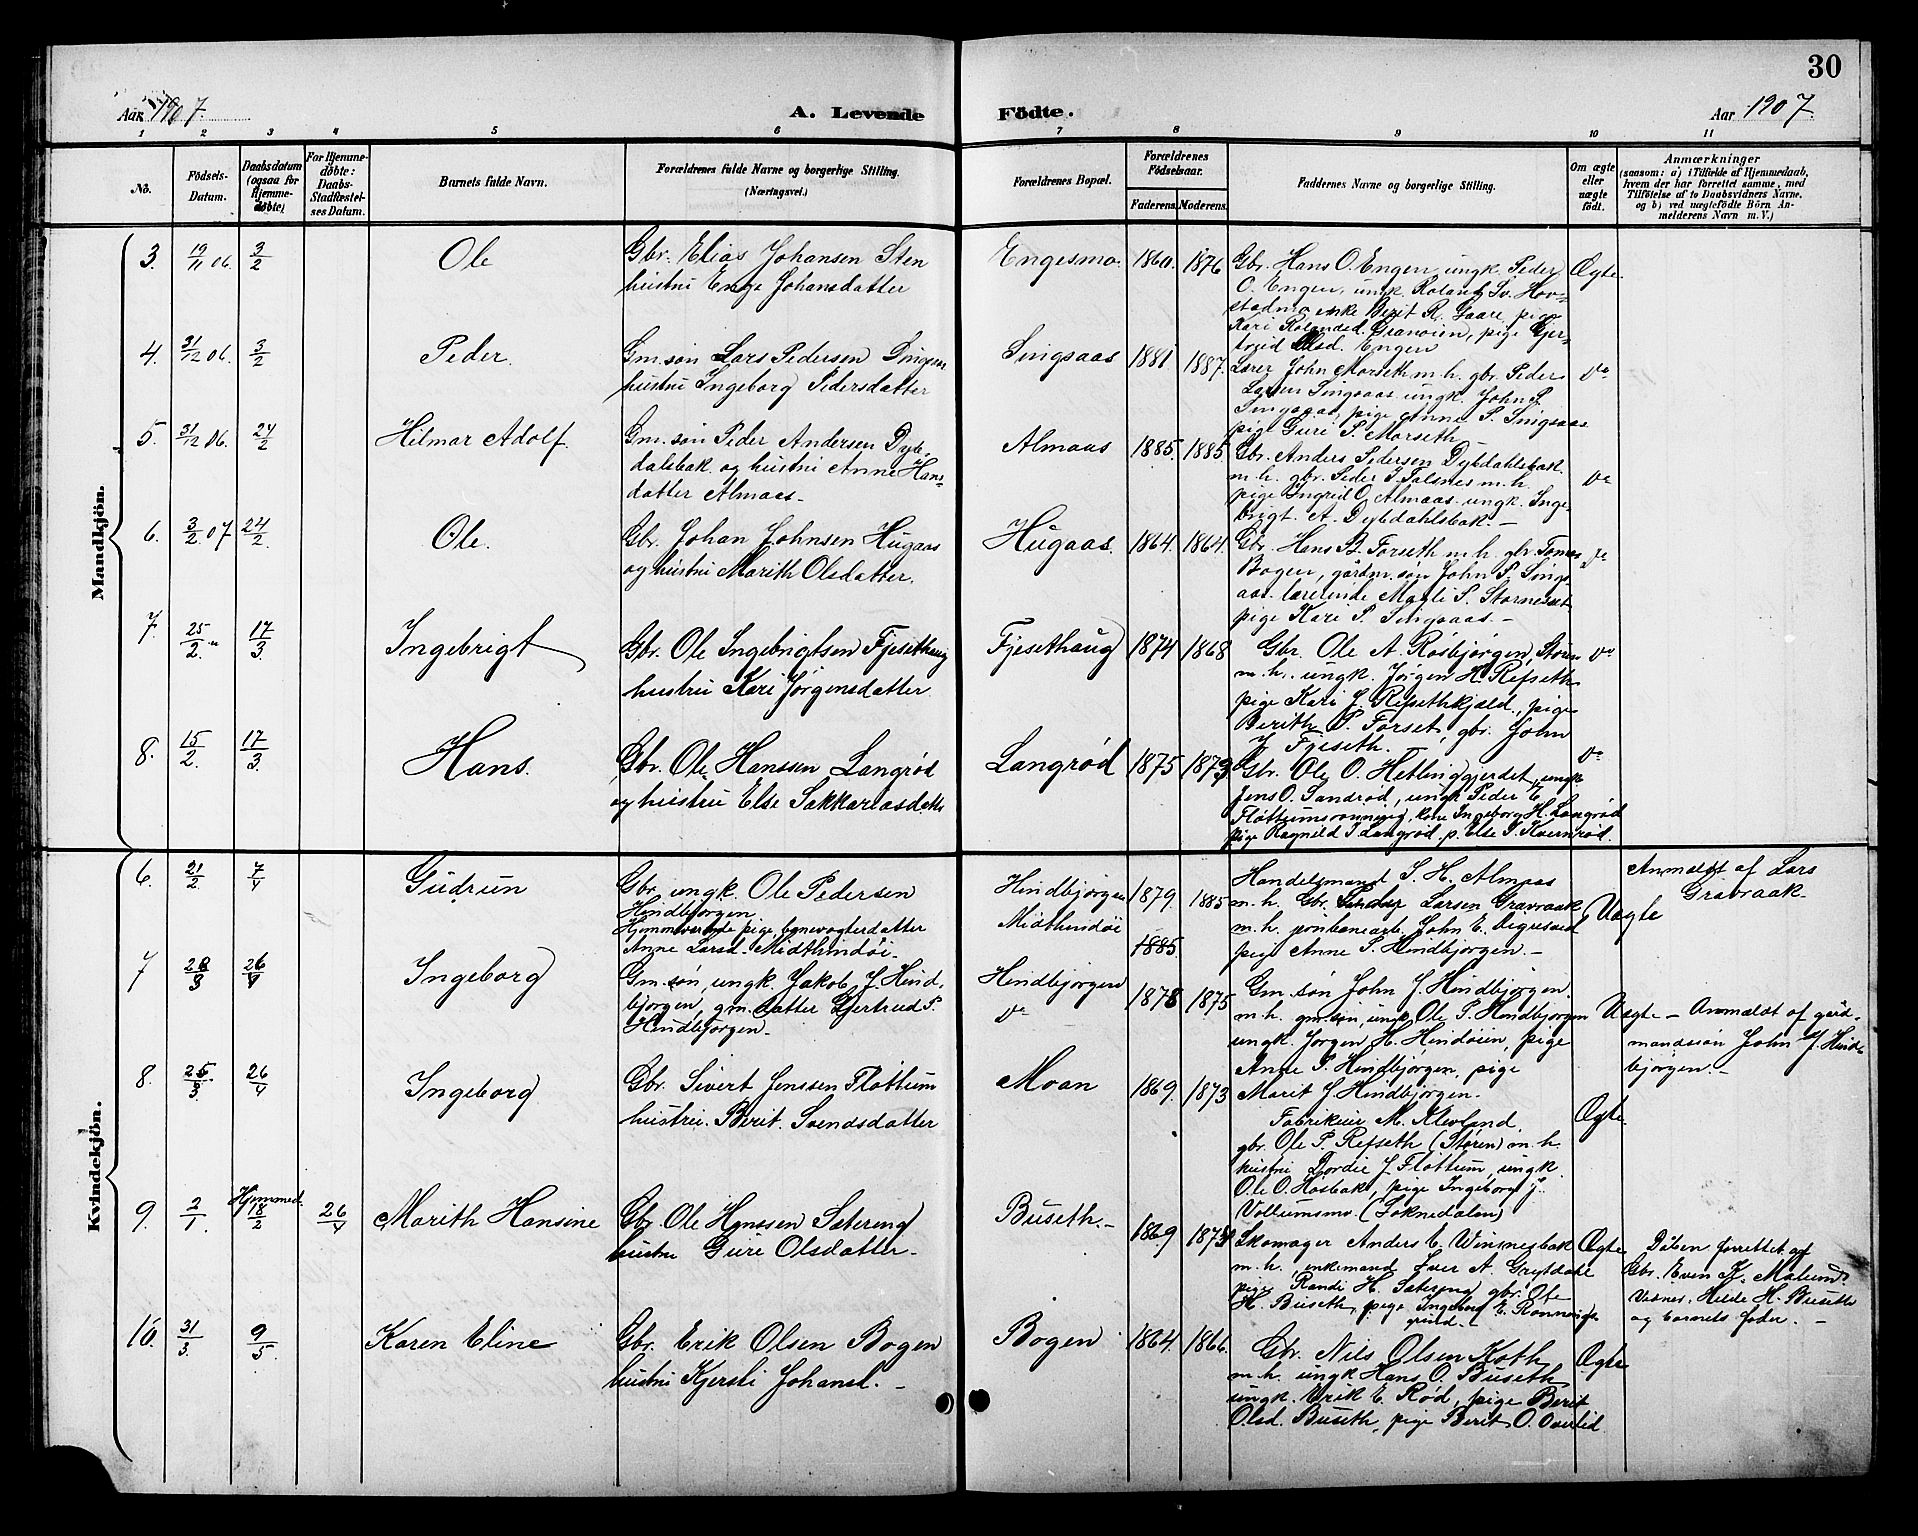 30
Aar 1907. A. Levende Födte. Aar 1907.
1 2 3 4 5 6 7 8 9 10 11
No.
Födsels-
Datum.
Daabsdatum
(ogsaa for
Hjemme-
døbte)
For Hjemme-
døbte:
Daabs-
Stadfæstel-
ses Datum.
Barnets fulde Navn.
Forældrenes fulde Navne og borgerlige Stilling.
(Næringsvei.)
Forældrenes Bopæl.
Forældrenes
Födselsaar.
Faderens. Moderens.
Faddernes Navne og borgerlig Stilling.
Om ægte
eller
uægte
født.
Anmærkninger
(saasom: a) i Tilfælde af Hjemmedaab,
hvem der har forrettet samme, med
Tilföielse af to Daabsvidners Navne,
og b) ved uægtefödte Börn An-
melderens Navn m. V.)
Mandkjön.
3. 19/11 06. 3/2 Ole
Gbr. Elias Johansen Sten
hustru Enge Johansdatter
Engesmo. 1860. 1876
Gbr. Hans O. Engen, ungk. Peder
O. Engen, ungk. Roland Sv. Hov-
stadmo, enke Berit R. Haare, pige
Kari Rolandsd. Granøien, pige Gjer-
trud Olsd. Engen
Ægte.
4. 31/12 06. 3/2 Peder.
Gm. søn Lars Pedersen Singsaas
hustru Ingeborg Pedersdatter
Singsaas 1881 1887.
Lærer John Morseth m. h. gbr. Peder
Larsen Singsaas ungk. John P.
Singsaas, pige Anne P. Singsaas
pige Guri P. Morseth
do
5. 31/12 06. 24/2 Hilmar Adolf.
Gm. søn Peder Andersen Dyb-
dalsbak og hustru Anne Hans-
datter Almaas.
Almaas 1885. 1885
Gbr. Anders Pedersen Dybdahlsbak
m. h. gbr. Peder J. Folsnes m. h.
pige Ingrid O. Almaas ungk. Inge-
brigt A. Dybdahlsbak.
do
6. 3/2 07 24/2. Ole.
Gbr. Johan Johnsen Hugaas
og hustru Marith Olsdatter.
Hugaas. 1864. 1864.
Gbr. Hans B. Forseth m. h. gbr. Tomas
Bogen, gårdm. søn John P. Sings-
aas. lærerinde Magli S. Storneset
pige Kari P. Singsaas.
do
7. 25/2. 17/3. Ingebrigt
Gbr. Ole Ingebrigtsen Fjesethaug
hustru Kari Jørgensdatter.
Fjesethaug 1874 1868
Gbr. Ole A. Rosbjørgen, Støren
m. h., ungk. Jørgen H. Refseth
pige Kari J. Refsethkjæld, pige
Berith P. Forset, gbr. John
J. Fjeseth.
do
8. 15/2. 17/3. Hans.
Gbr. Ole Hanssen Langrød
og hustru Else Sakkariasdatter
Langrød 1875 1873
Gbr. Ole O. Hetlinggjerdet, ungk
Jens O. Sandrød, ungk. Peder E.
Fløttumsrønning, kone Ingeborg H. Langrød
pige Ragnild J. Langrød. p. Else J. Kvernrød.
do
Kvindekjön.
6. 21/2. 7/4 Gudrun
Gbr. ungk. Ole Pedersen
Hindbjørgen
Hjemmeværende pige, banevogterdatter
Anne Larsd. Midthindøi.
Hindbjørgen
Midthindøi
1879. 1885
1885.
Handelsmand S. H. Almaas
m. h. Gbr. Larsen Gravraak
m. h. jernbanearb. John E.
pige Anne P. Hindbjørgen.
Uægte
Anmeldt af Lars
Gravraak.
7 28/3 26/4 Ingeborg
Gm. søn, ungk. Jakob J. Hind-
bjørgen, gm. datter Gjertrud P.
Hindbjørgen.
Hindbjørgen
do
1878 1875
Gm. søn John J. Hindbjørgen.
m. h. gm. søn, ungk Ole P. Hindbjørgen
ungk. Jørgen H. Hindøien, pige
Ande P. Hindbjørgen, pige
Marit J. Hindbjørgen.
Uægte
Anmeldt af gård-
mandssøn John J. Hind-
bjørgen.
8. 25/3 26/4 Ingeborg
Gbr. Sivert Jenssen Fløttum
hustru. Berit. Svendsdatter
Moan 1869. 1873
Fabrikeier M. Klevland.
gbr. Ole P. Refseth (Støren) m. h.
hustru Dordie J. Fløttum, ungk
Ole O. Høsbak, pige Ingeborg J.
Vollumsmo. (Soknedalen)
Ægte
9. 2/1. Hjemmed. 18/2 26/4 Marith Hansine
Gbr. Ole Hanssen Sætereng
hustru Guri Olsdatter.
Buseth. 1869 1873
Skomager Anders E. Winsnesbak
m. h., enkemand Iver A. Grytdale
pige Randi H. Sætereng gbr. Ole
H. Buseth, pige Ingebor E. Rønnings-
grind.
Ægte
Dåben forrettet af
Gbr. Even K. Malum.
Vidner. Helde H. Buseth
og barnets fader.
10. 31/3. 9/5. Karen Eline
Gbr. Erik Olsen Bogen
hustru Kjersti Johansd.
Bogen 1864. 1866.
Gbr. Nils Olsen Koth
m. h. ungk Hans O. Buseth
ungk. Erik E. Rød, pige Berit
Olsd. Buseth, pige Berit O. Overlid
Ægte